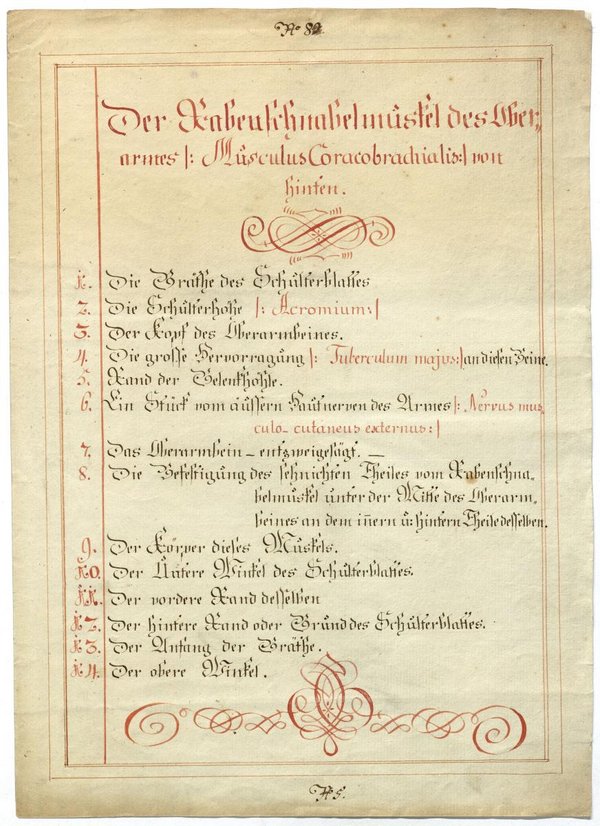 No 82.
Der Rabenschnabelmuskel des Ober„
armes /: Musculus Coracobrachialis:/ von
hinten.
1. Die Gräthe des Schulterblattes
2. Die Schulterhohe /: Acromium:/
3. Der Kopf des Oberarmbeines.
4. Die grosse Hervorragung /: Tuberculum majus:/ an diesen Beine.
5. Rand der Gelenkhohle.
6. Ein Stück vom äussern Hautnerven des Armes /: Nervus mus„
culo-cutaneus externus:/
7. Das Oberarmbein – entzweigesägt. —
8. Die Befestigung des sehnichten Theiles vom Rabenschna„
belmuskel unter der Mitte des Oberarm„
beines an dem innern u: hintern Theile desselben.
9. Der Körper dieses Muskels.
10. Der Untere Winkel des Schulterblattes.
11. Der vordere Rand desselben
12. Der hintere Rand oder Grund des Schulterblattes.
13. Der Anfang der Gräthe.
14. Der obere Winkel.
5.